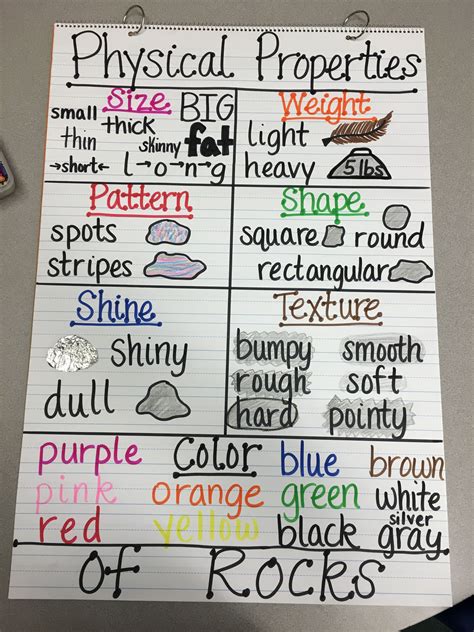 Physical Properties
Size
small
BIG
thick
thin
skinny
fat
→short←
l→o→n→g
Weight
light
heavy
5 lbs
Pattern
spots
stripes
Shape
square
round
rectangular
Shine
shiny
dull
Texture
bumpy smooth
rough soft
hard pointy
purple Color blue brown
pink orange green white
red yellow black silver
gray
Of Rocks